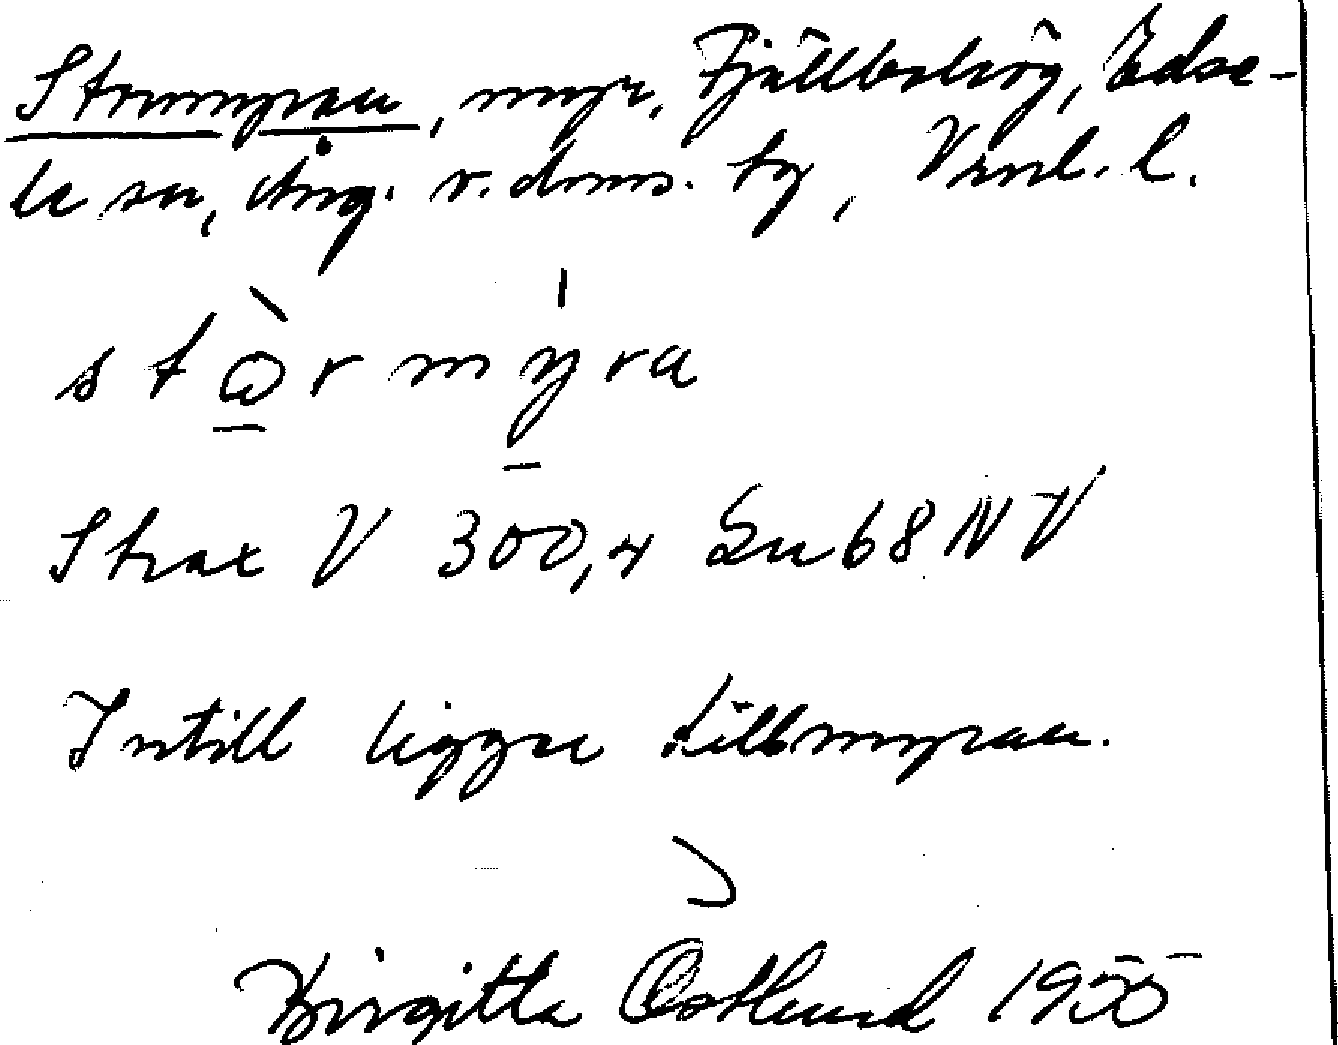 Stormyran, myr, Fjällboberg, Edse-
le sn, Ång. v. doms. by, Vnl. l.
stɷ̀r mýra
Strax V 300,4 Su 68 NV
Intill ligger Lillmyran.
Birgitta Östlund 1955